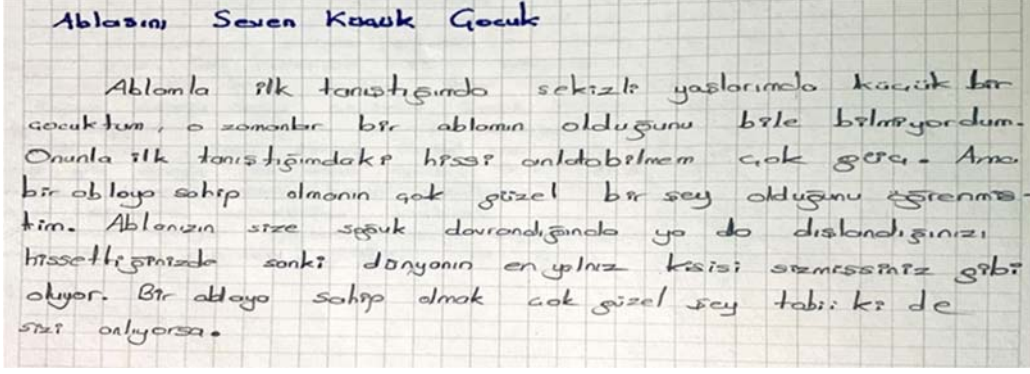 Ablasını Seven Küçük Çocuk
Ablamla ilk tanıştığımda sekizli yaşlarımda küçük bir
çocuktum, o zamanlar bir ablamın olduğunu bile bilmiyordum.
Onunla ilk tanıştığımdaki hissi anlatabilmem çok güç. Ama
bir ablaya sahip olmanın çok güzel bir şey olduğunu öğrenmiş-
tim. Ablanızın size soğuk davrandığında ya da dışlandığınızı
hissettiğinizde sanki dünyanın en yalnız kişisi sizmişsiniz gibi
oluyor. Bir ablaya sahip olmak çok güzel şey tabii ki de
sizi anlıyorsa.